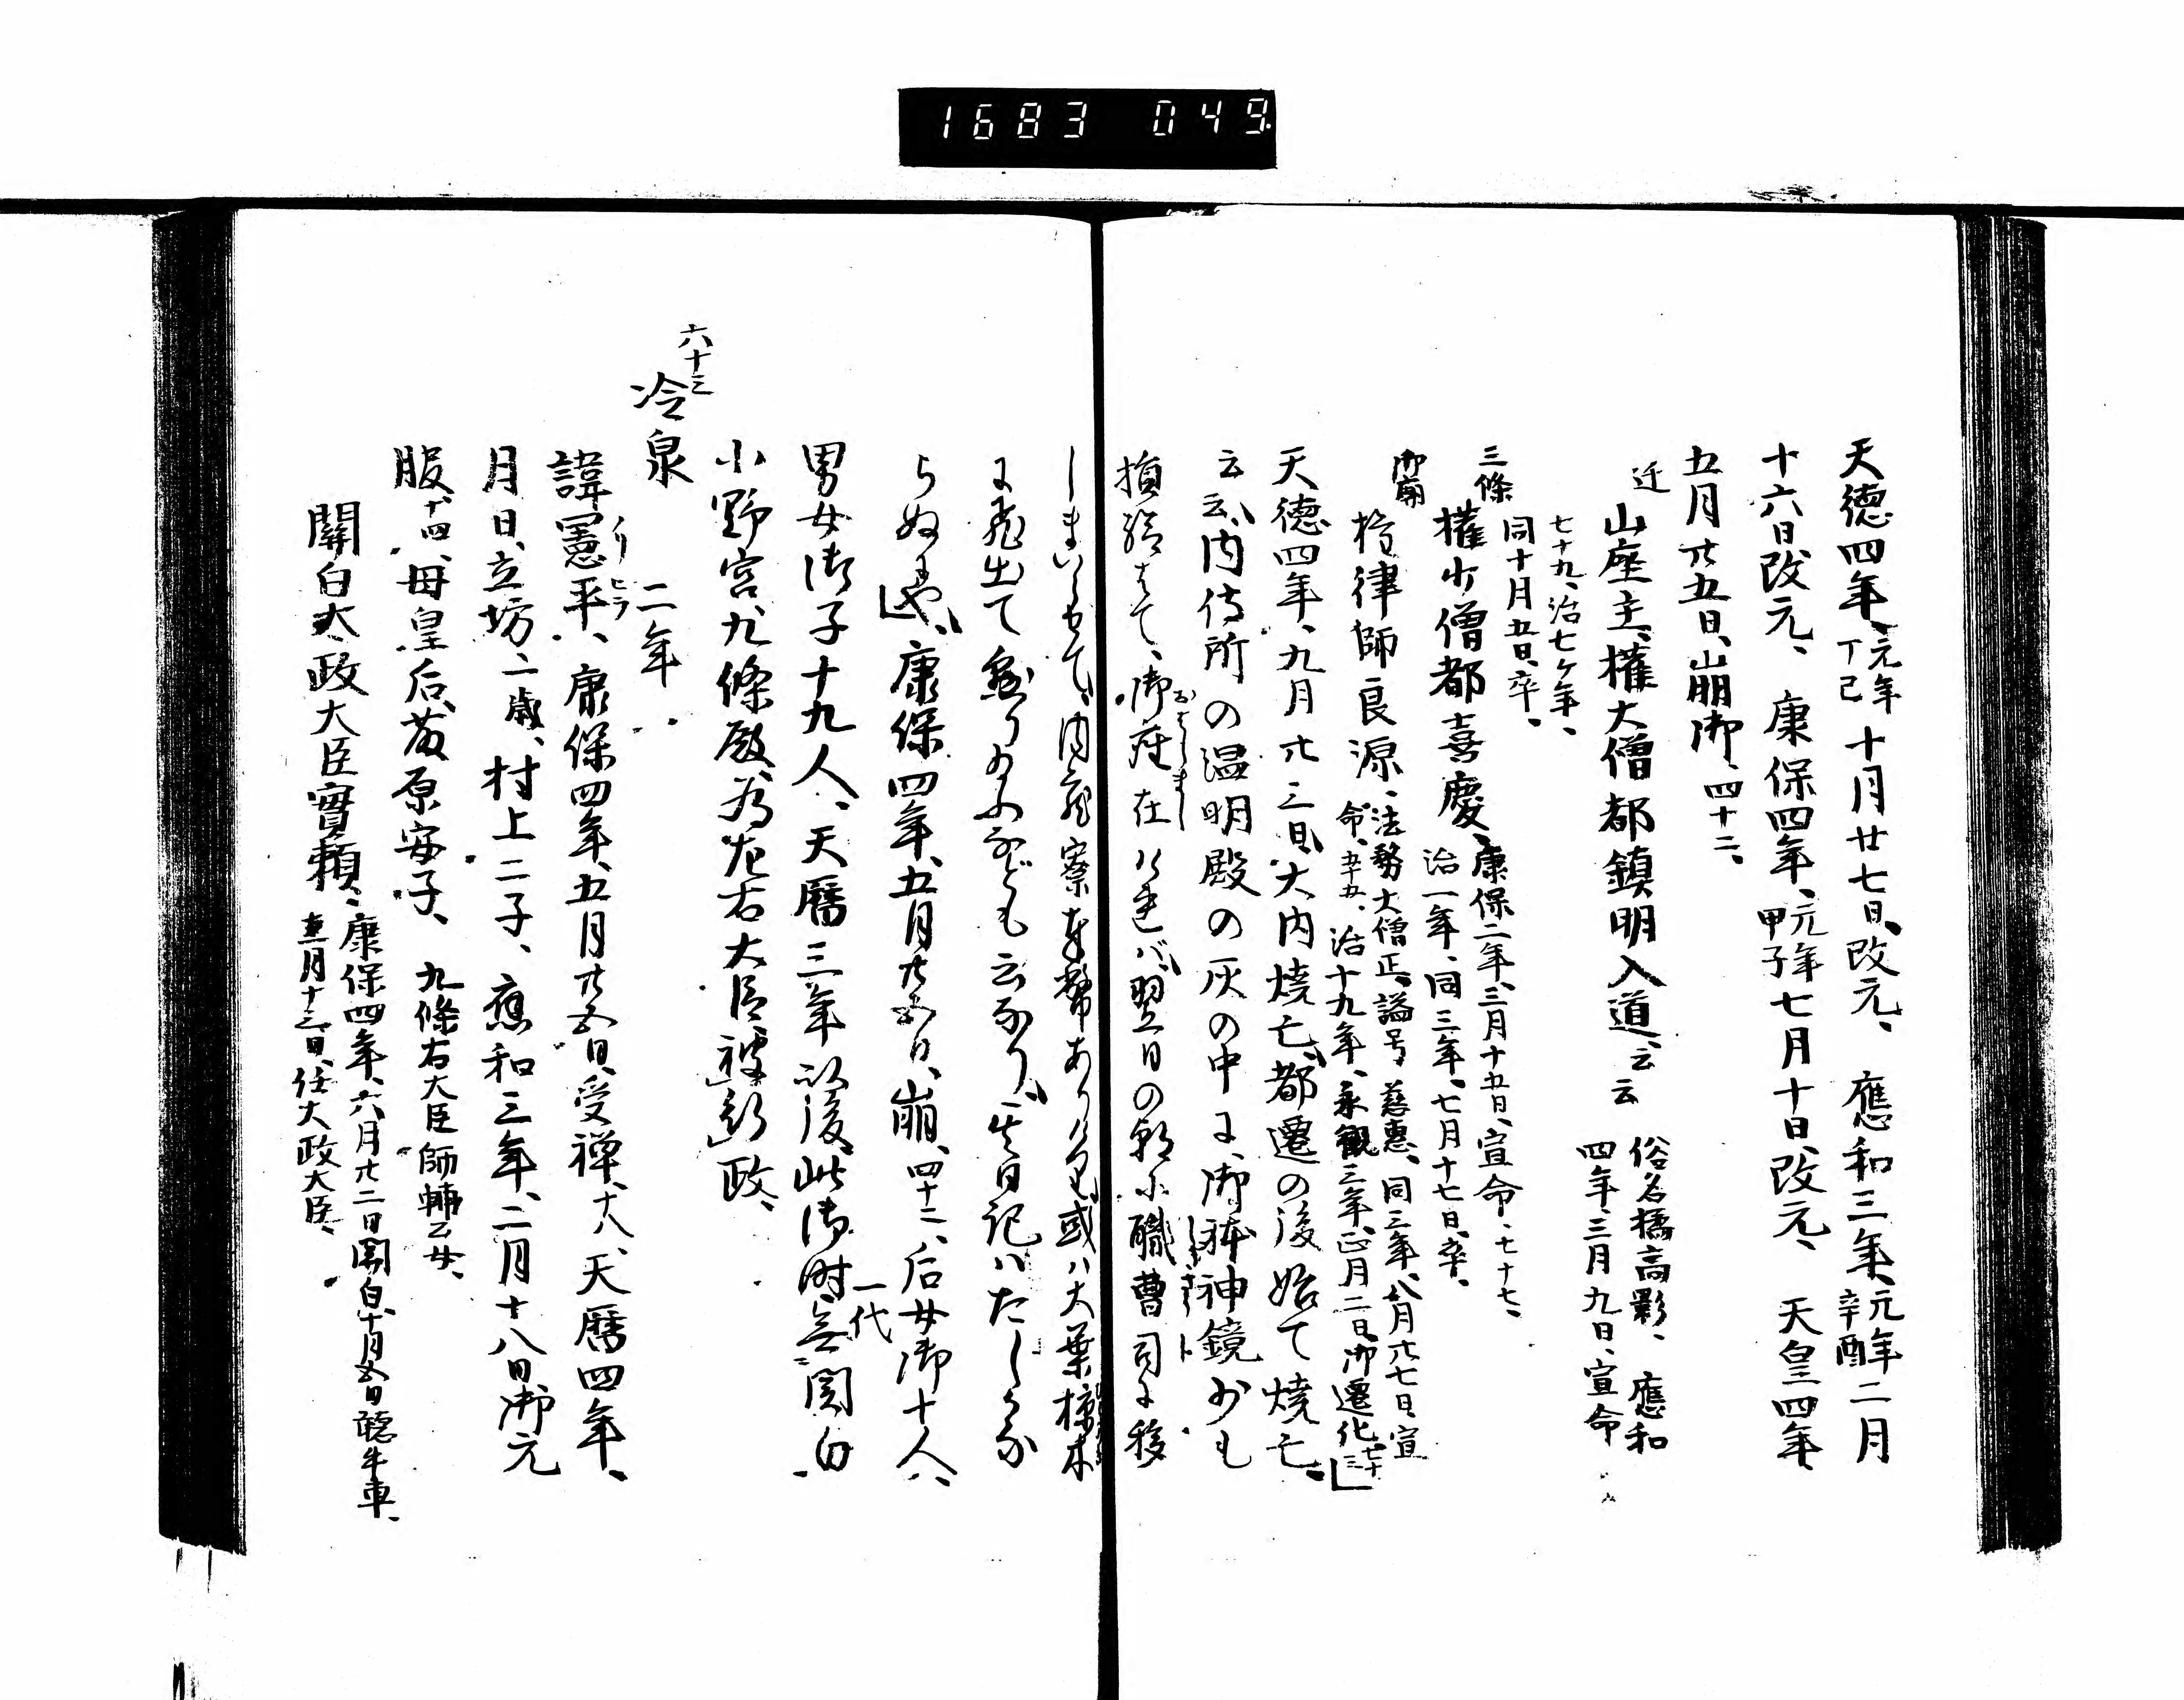 1683 049.
天徳四年、元年丁巳十月廿七日、改元、應和三年、元年辛酉二月
十六日改元、康保四年、元年甲子七月十日、改元、天皇四年、
五月廿五日、崩御、四十二、
山座主、權大僧都鎮明入道、云云 俗名橘高影、應和
四年、三月九日、宣命
七十九、治七ケ年、
同十月五日、卒、
三條
權少僧都喜慶、康保二年、三月十五日、宣命、七十七、
治一年、同三年、七月十七日、卒、
御廟
權律師良源、法務大僧正、謚号慈惠、同三年、八月廿七日宣
命、五十五、治十九年、永観三年、正月二日、御遷化、七十三
天徳四年、九月廿三日、大内焼亡、都遷の後始て焼亡、
云云、内侍所の温明殿の灰の中に、御躰神鏡少も
損給はて、御座在ければ、翌日の朝、小職曹司に移
しまいらせて、内蔵寮奉幣ありけり、或ハ大葉椋木
に飛出て懸りたふなども云なり、其日記ハたしかな
らぬにや、康保四年、五月廿五日、崩、四十二、后女御十人、
男女御子十九人、天暦三年以後、此御時一代無関白
小野宮、九條殿為左右大臣被行政、
六十三
冷泉 二年
諱憲平、康保四年、五月廿五日、受禅、十八、天暦四年、
月日、立坊、二歳、村上二子、應和三年、二月十八日、御元
服、十四、母皇后、藤原安子、九條右大臣師輔云女、
關白太政大臣實頼、康保四年、六月廿二日關白、十月五日聴牛車、
十二月十三日、任太政大臣、